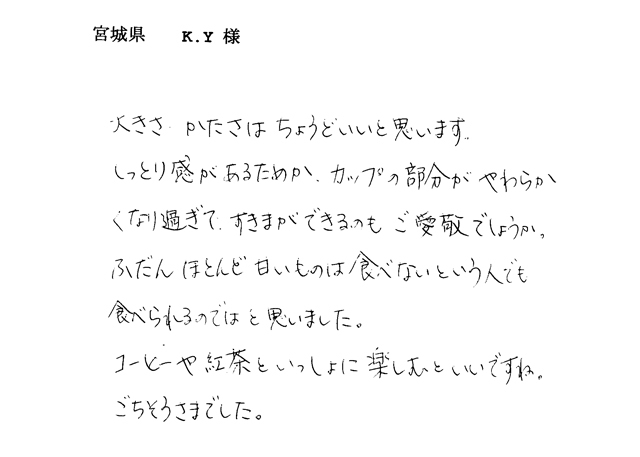 宮城県 K.Y 様
大きさ かたさは ちょうどいいと思います。
しっとり感があるためか、カップの部分が やわらかく
くなり過ぎて、すきまができるのも ご愛敬でしょうか。
ふだん ほとんど 甘いものは食べないという人でも
食べられるのではと思いました。
コーヒーや紅茶といっしょに楽しむといいですね。
ごちそうさまでした。